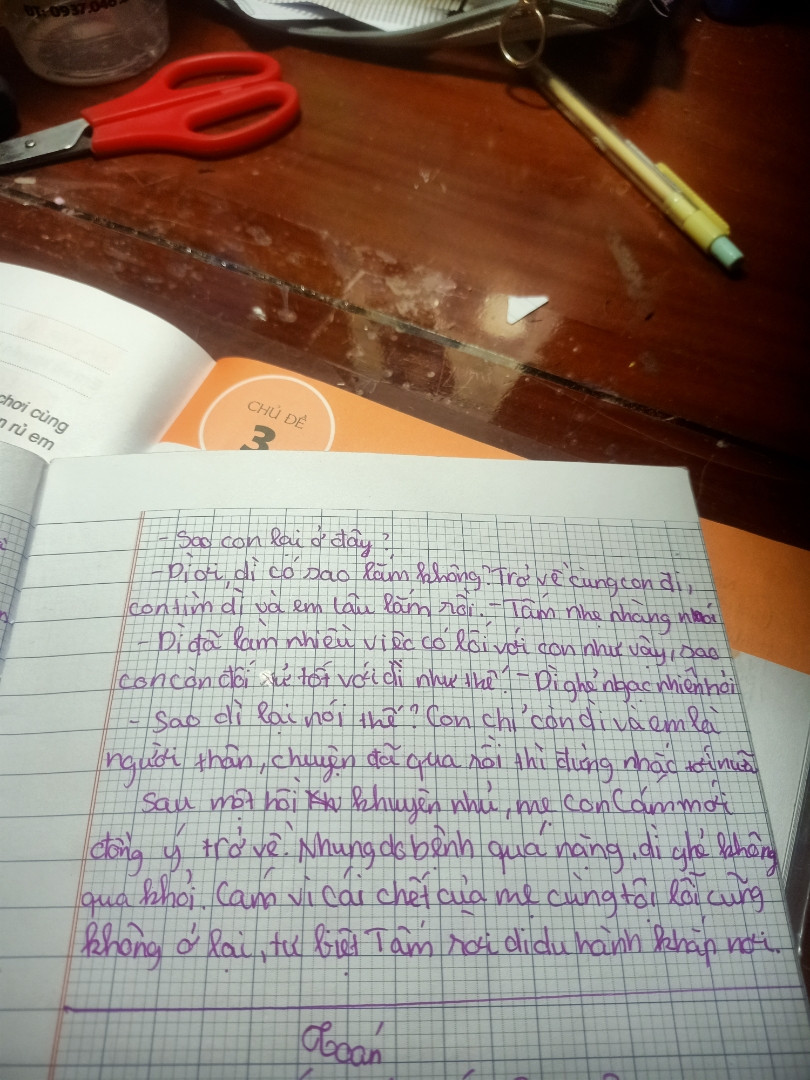 ĐT: 0937.040
chơi cùng
n rủ em
CHỦ ĐỀ
3
- Sao con lại ở đây?
- Dì ơi, dì có sao lắm không? Trở về cùng con đi,
con tìm dì và em lâu lắm rồi. - Tấm nhẹ nhàng nói
- Dì đã làm nhiều việc có lỗi với con như vậy, sao
con còn đối xử tốt với dì như thế? - Dì ghẻ ngạc nhiên hỏi
- Sao dì lại nói thế? Con chỉ còn dì và em là
người thân, chuyện đã qua rồi thì đừng nhắc tới nữa
Sau một hồi khuyên nhủ, mẹ con Cám mới
đồng ý trở về. Nhưng do bệnh quá nặng, dì ghẻ không
qua khỏi. Cám vì cái chết của mẹ cùng tội lỗi cũng
không ở lại, từ biệt Tấm rời đi du hành khắp nơi.
Toán